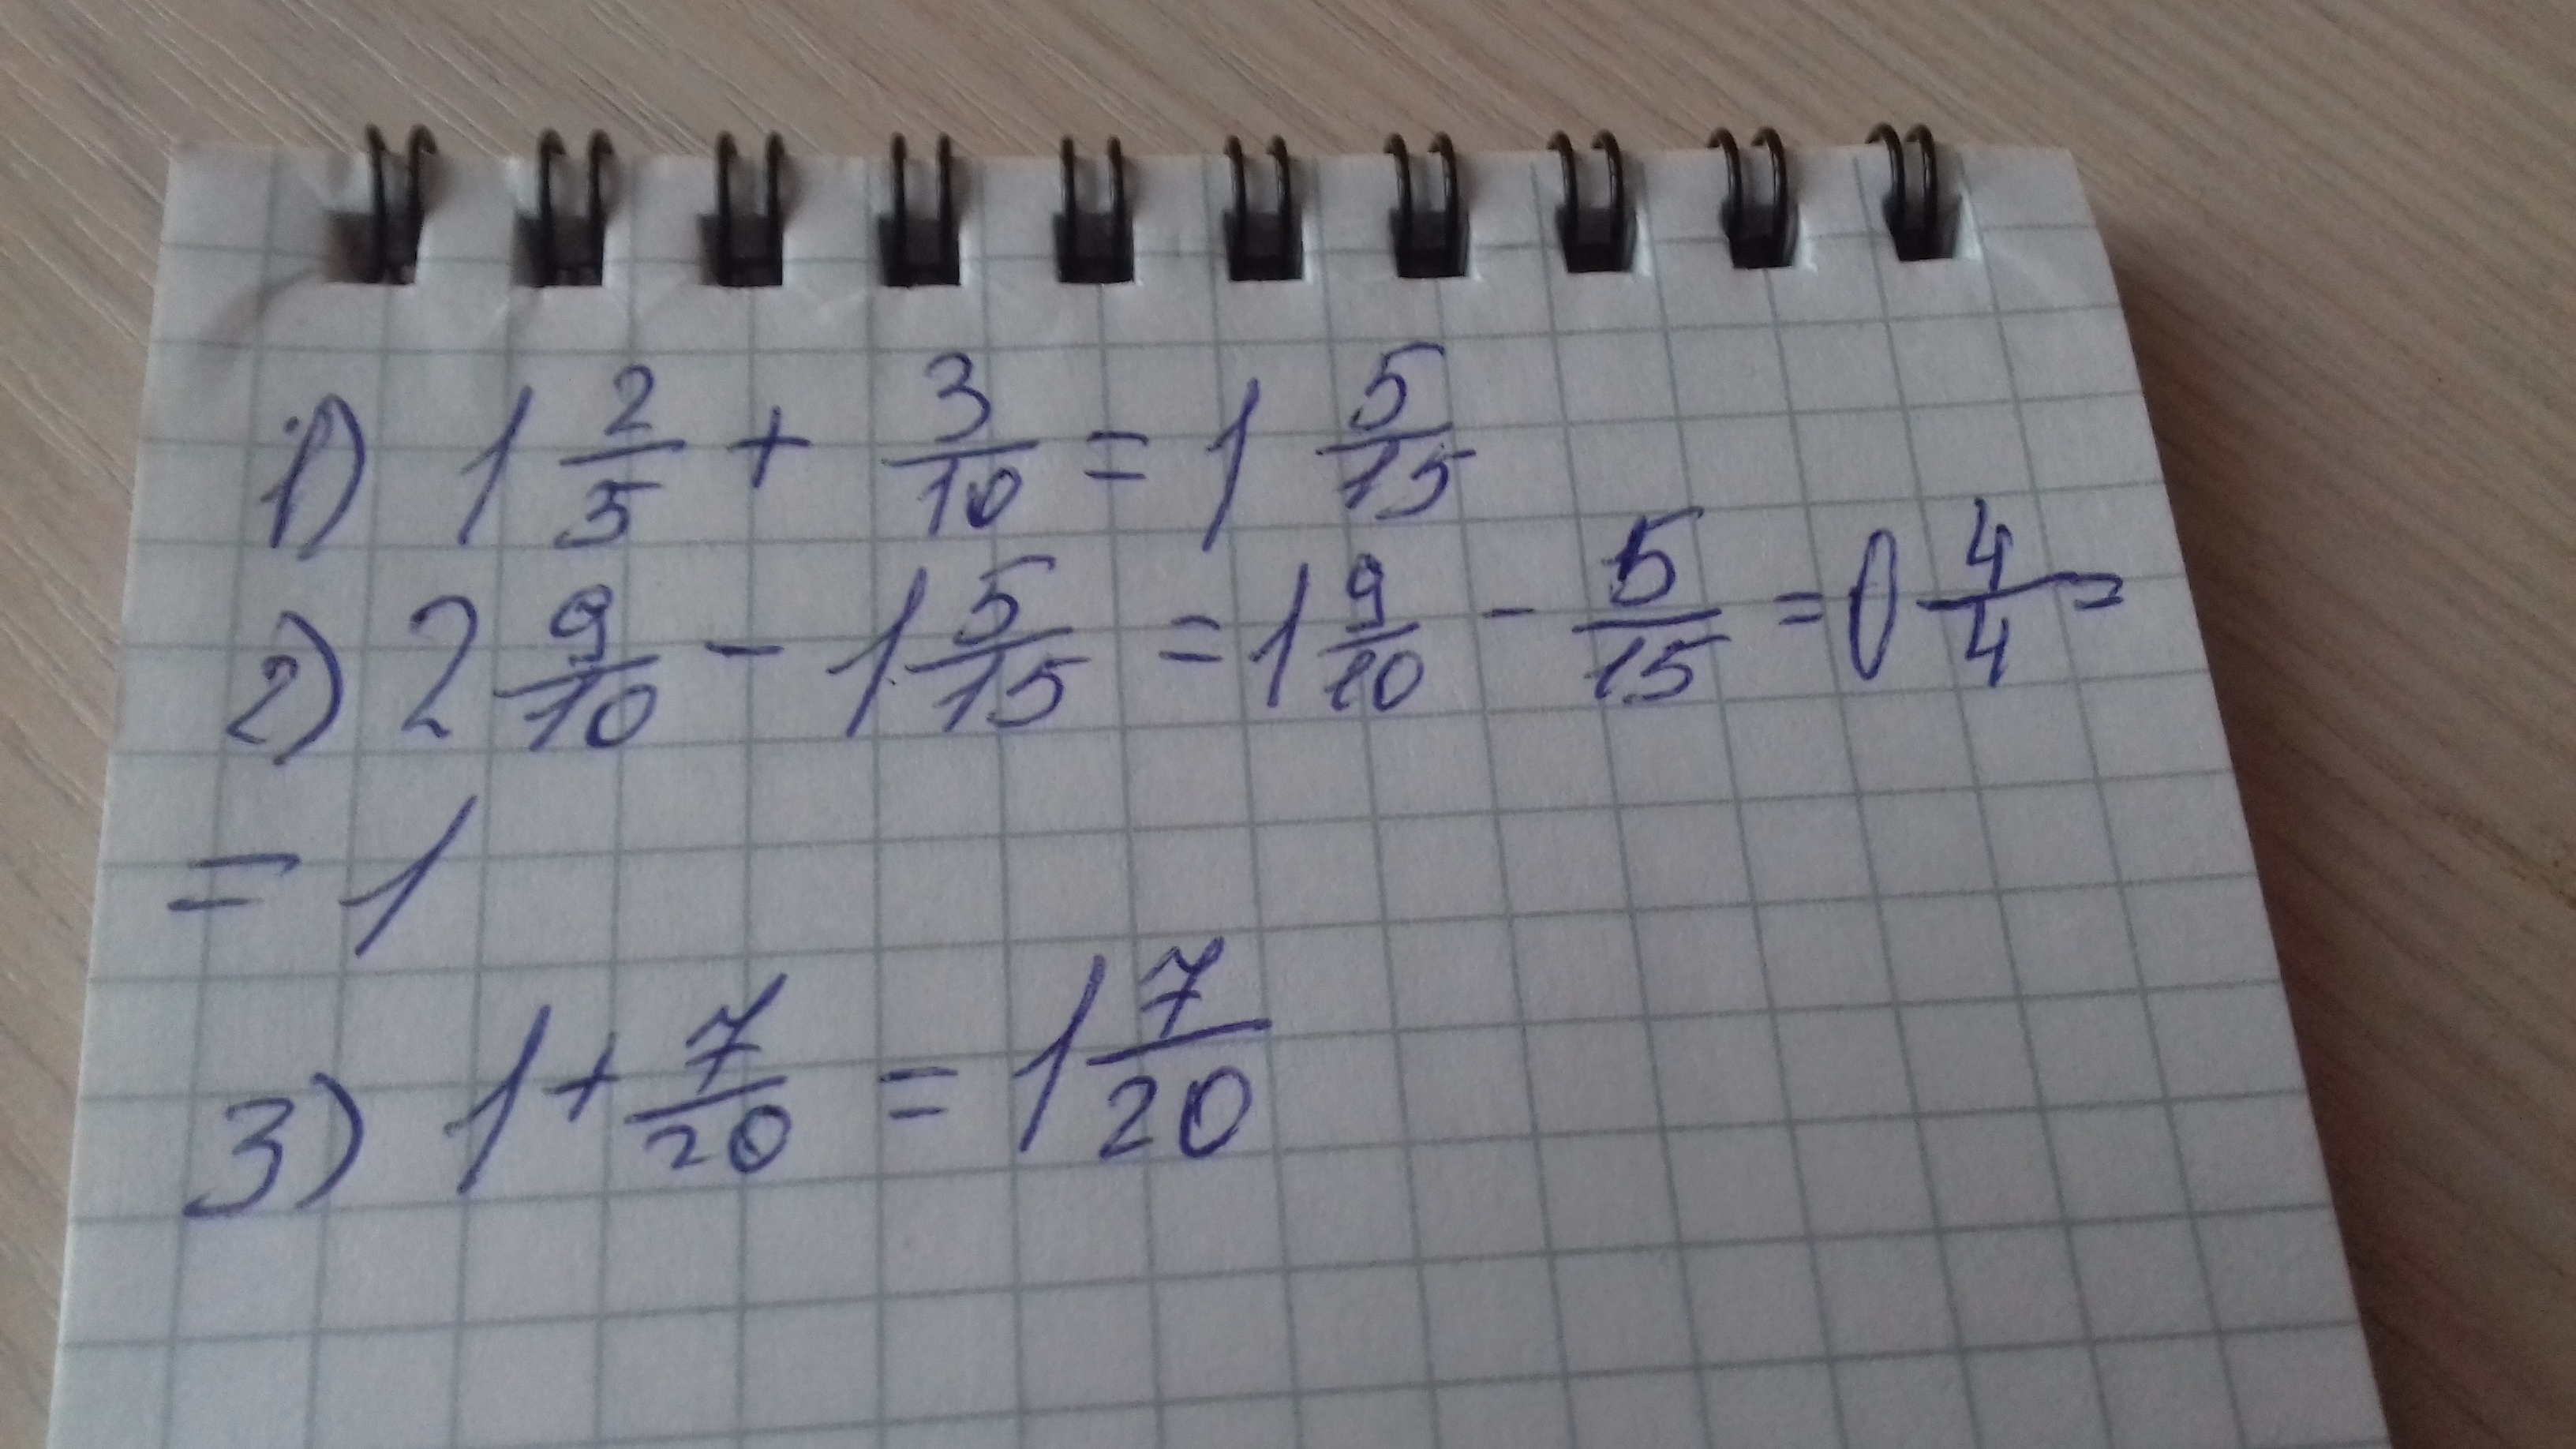 1) 1 2/5 + 3/10 = 1 5/15
2) 2 9/10 - 1 5/15 = 1 9/10 - 5/15 = 0 4/4 =
= 1
3) 1 + 7/20 = 1 7/20